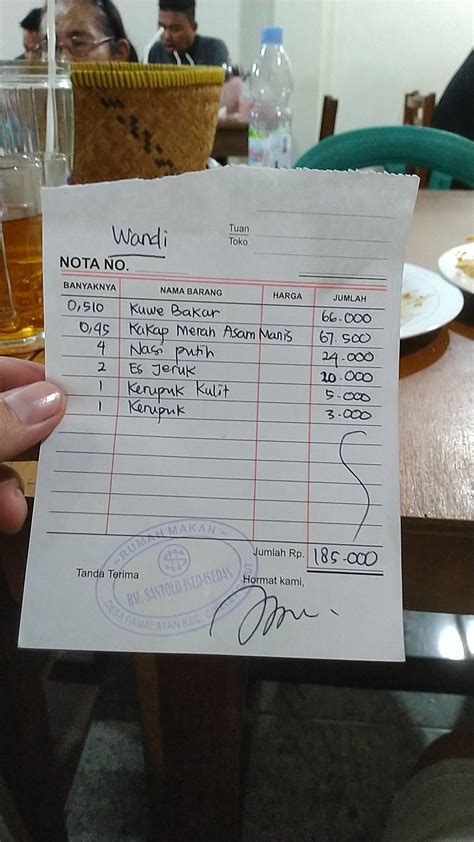 Wandi
Tuan
Toko
NOTA NO.
BANYAKNYA NAMA BARANG HARGA JUMLAH
0,510 Kuwe Bakar 66.000
0,45 Kakap Merah Asam Manis 67.500
4 Nasi putih 24.000
2 Es Jeruk 20.000
1 Kerupuk Kulit 5.000
1 Kerupuk 3.000
Jumlah Rp. 185.000
Tanda Terima
Hormat kami,
RUMAH MAKAN
RM. SANTOLO
DESA PAMALAYAN KEC.